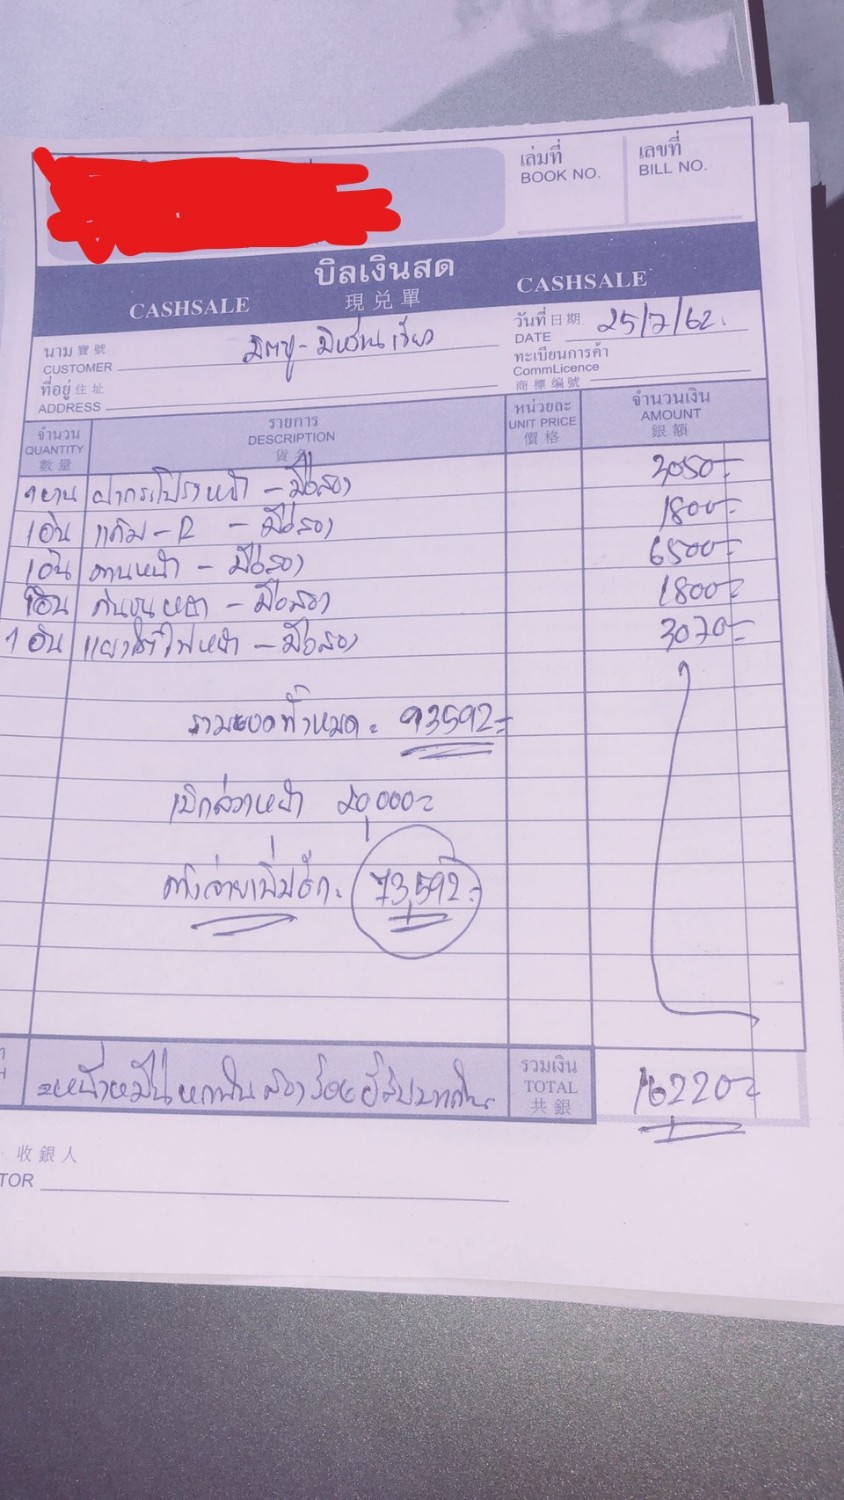 เล่มที่ เลขที่
BOOK NO. BILL NO.
บิลเงินสด
CASHSALE 現兑單 CASHSALE
นาม 寶號 วันที่ 日期 25/7/62.
CUSTOMER มิตซู - มิราจ เขียว DATE
ที่อยู่ 住址 ทะเบียนการค้า
ADDRESS CommLicence
商標编號
จำนวน รายการ หน่วยละ จำนวนเงิน
QUANTITY DESCRIPTION UNIT PRICE AMOUNT
數量 貨名 價格 銀額
1 บาน ฝากระโปรงหน้า - มือสอง 3050-
1 อัน แก้ม - R - มือสอง 1800-
1 อัน คานหน้า - มือสอง 6500-
1 อัน กันชนหน้า - มือสอง 1800-
1 อัน หน้า - มือสอง 3070-
รวมยอดทั้งหมด = 93592-
เบิกล่วงหน้า 20,000-
ต้องจ่ายเพิ่มอีก = 73,592-
=หนึ่งหมื่นหกพันสองร้อยยี่สิบบาทถ้วน= รวมเงิน
TOTAL 16220-
共銀
收銀人
TOR